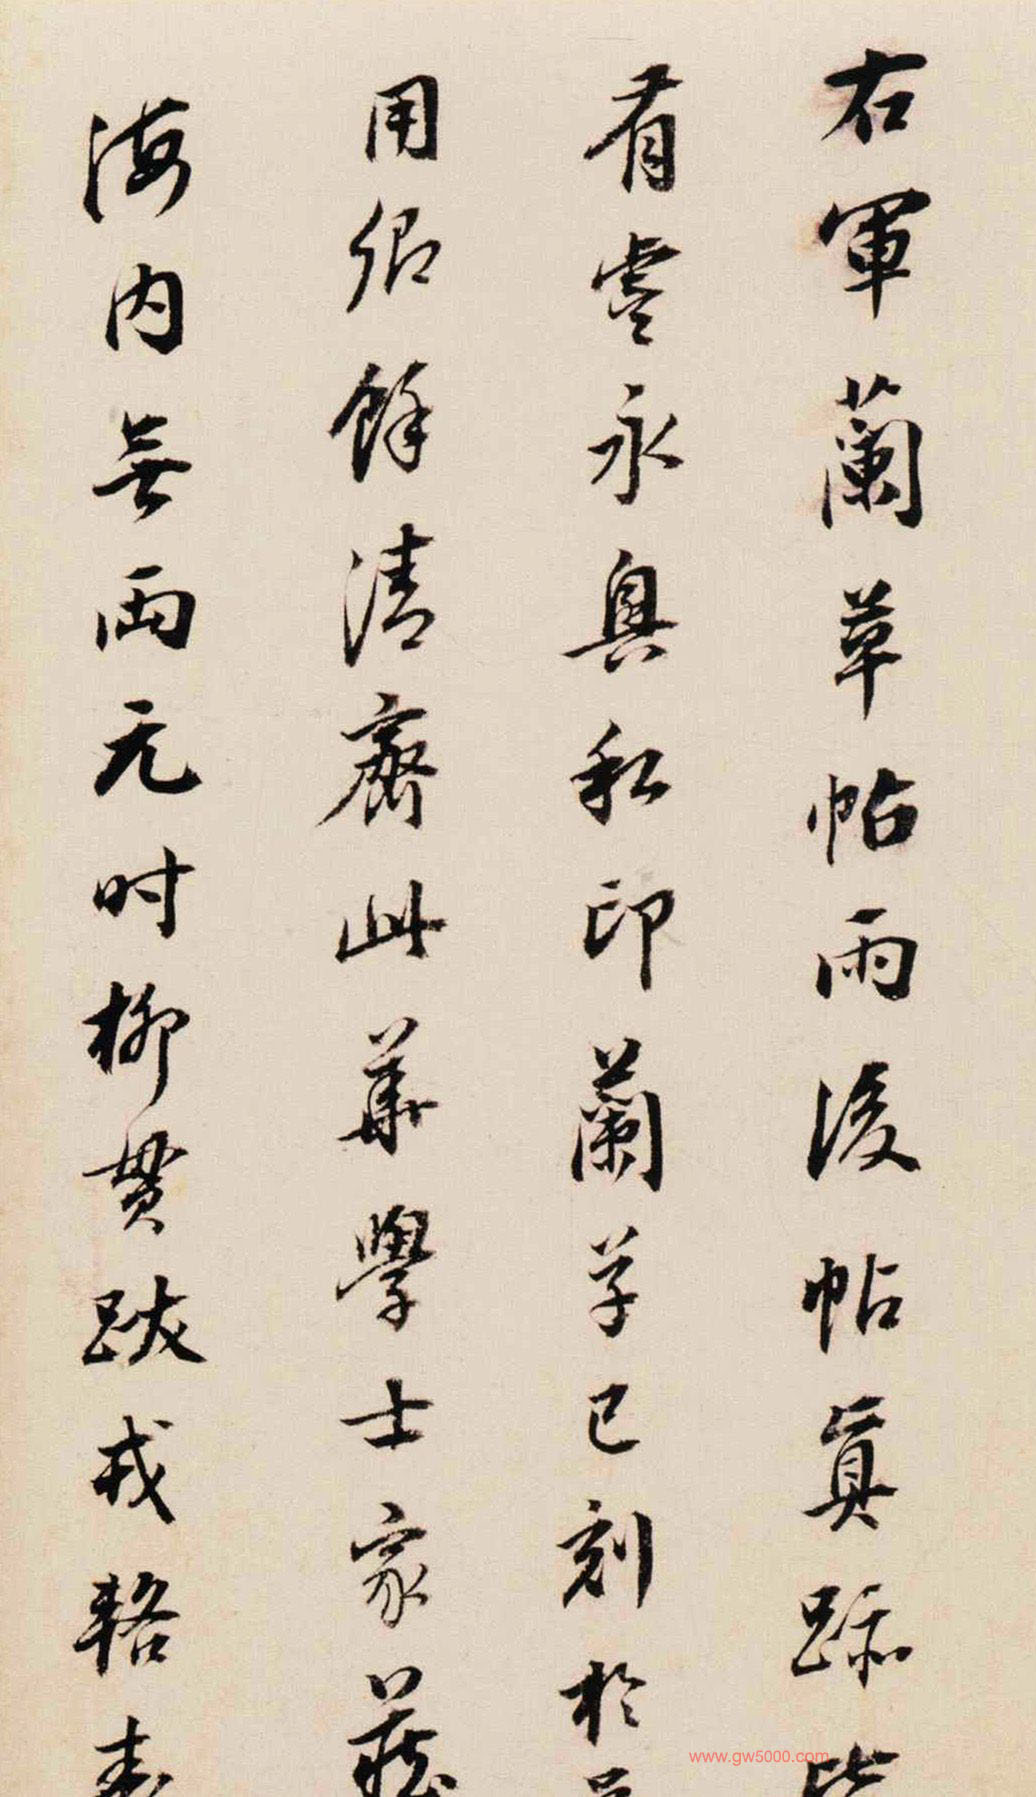 右軍蘭草帖雨後帖真跡皆
有虞永興私印蘭草已刻於吳
用卿餘清齋此華學士家藏
海内無兩元時柳貫跋戎輅表
www.gw5000.com